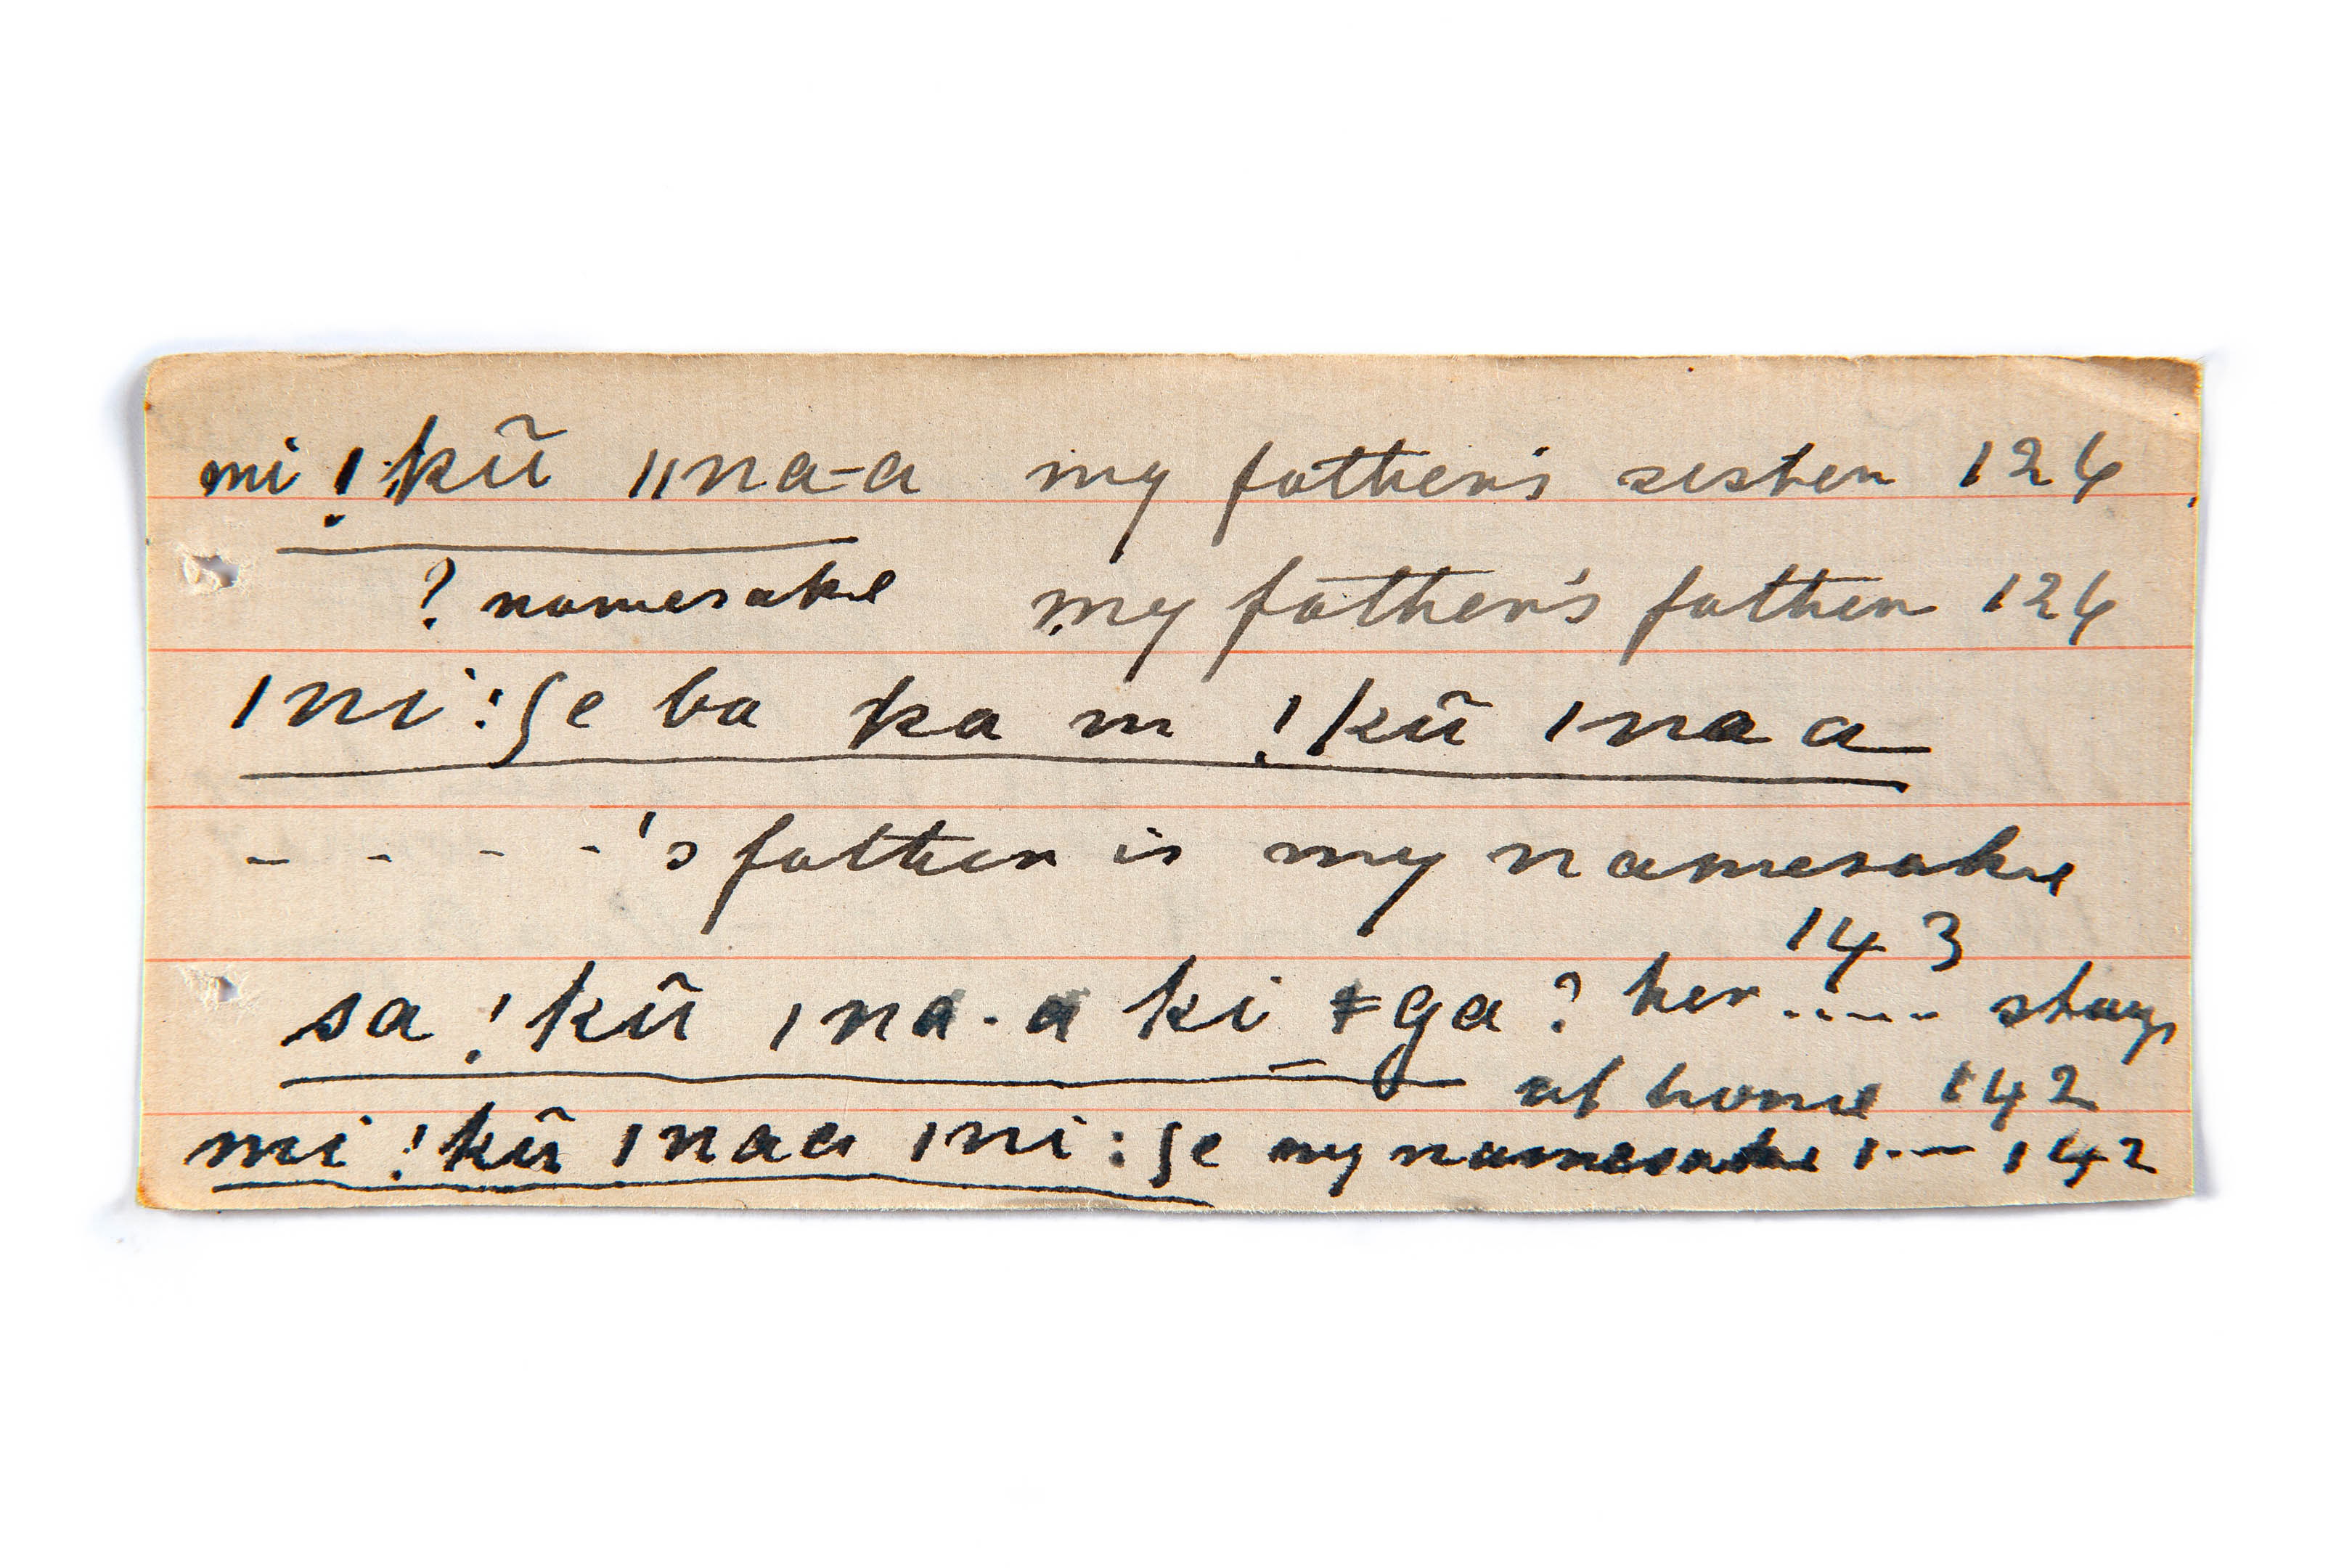 mi !kũ ǁna-a my father's sister 126
? namesake my father's father 126
ǀni:ʃe ba ka m !kũ ǀnaa
- - - -'s father is my namesake
143
sa !kũ ǀna-a ki ǂga ? her ..... stays
at home 142
mi !kũ ǀnaa ǀni:ʃe my namesake ǀ--- 142